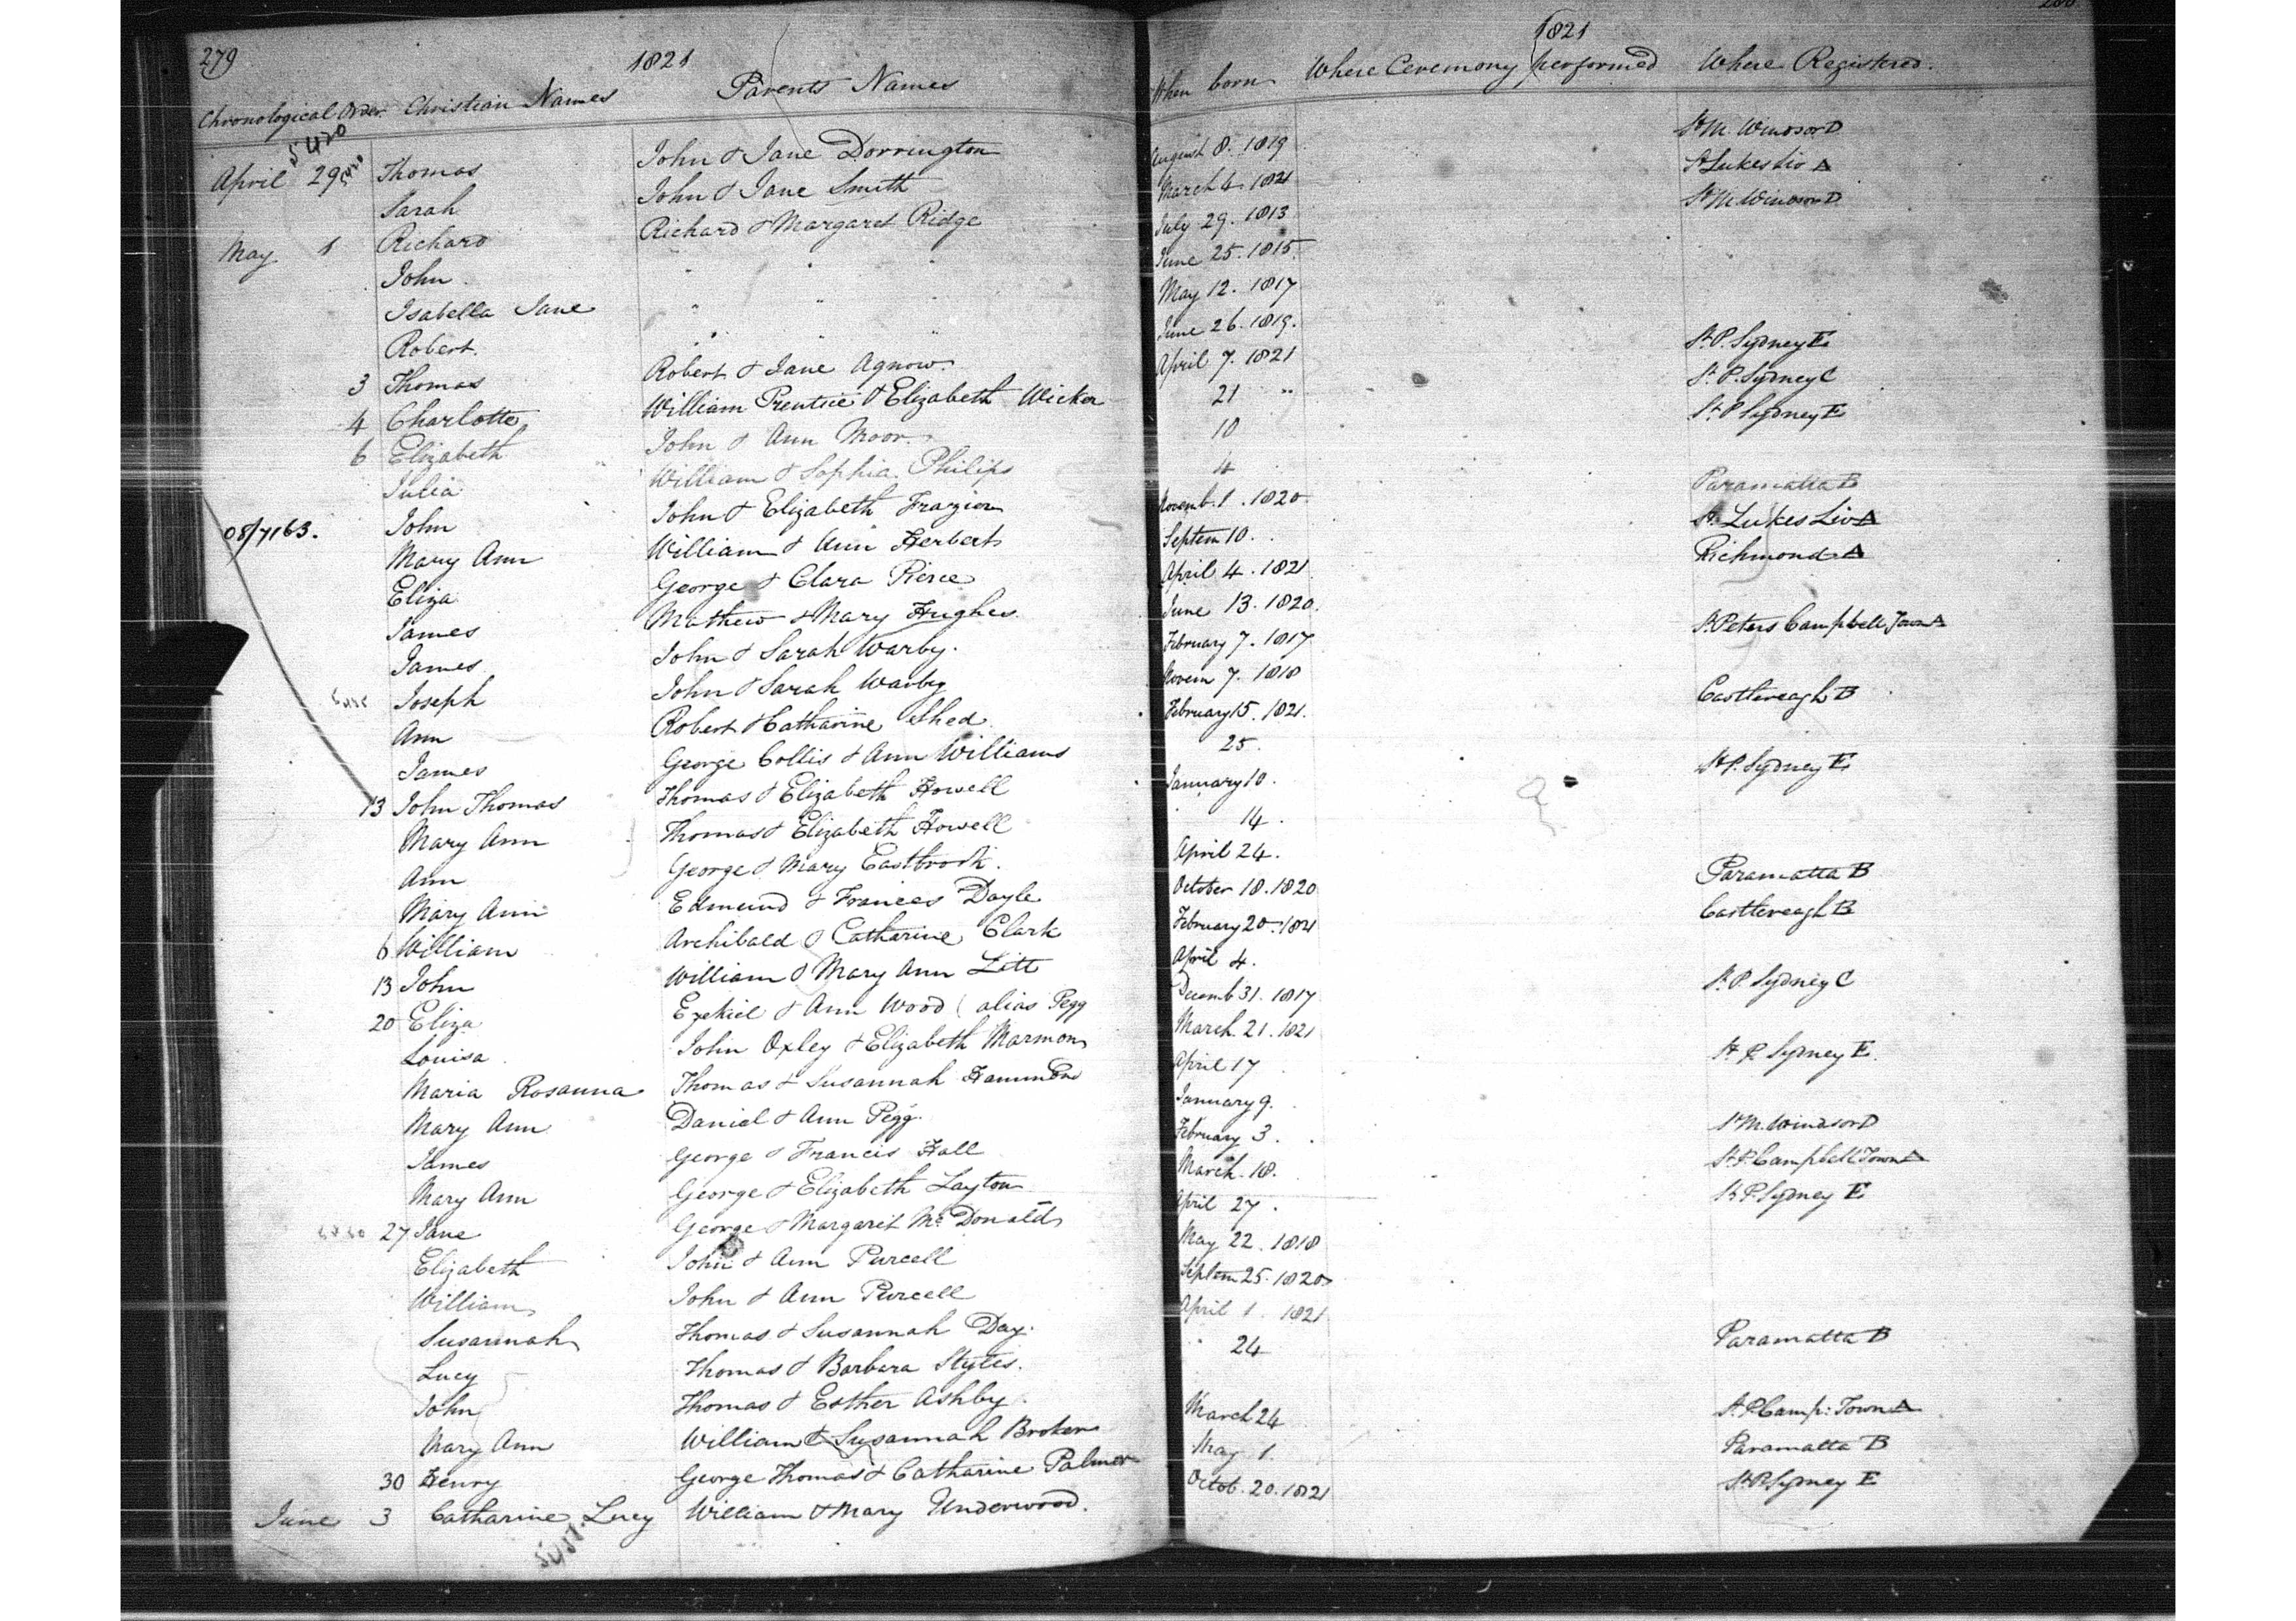 279
1821
Chronological Order Christian Names Parents Names
5420
April 29 Thomas John & Jane Dorrington
Sarah John & Jane Smith
May 1 Richard Richard & Margaret Ridge
John " "
Isabella Jane " "
Robert. " "
3 Thomas Robert & Jane Agnow.
4 Charlotte William Prentice & Elizabeth Wicker
6 Elizabeth John & Ann Moor.
Julia William & Sophia Philips
08/7163. John John & Elizabeth Frazier
Mary Ann William & Ann Herbert
Eliza George & Clara Pierce
James Mathew & Mary Hughes.
James John & Sarah Warby.
Joseph John & Sarah Warby
Ann Robert & Catharine Shed.
James George Collis & Ann Williams
13 John Thomas Thomas & Elizabeth Howell
Mary Ann Thomas & Elizabeth Howell
Ann George & Mary Eastbrook.
Mary Ann Edmund & Frances Doyle
6 William Archibald & Catharine Clark
13 John William & Mary Ann Litt
20 Eliza Ezekiel & Ann Wood (alias Pegg
Louisa. John Oxley & Elizabeth Marmon
Maria Rosanna Thomas & Susannah Hammond
Mary Ann Daniel & Ann Pegg.
James George & Francis Hall
Mary Ann George & Elizabeth Layton
27 Jane George & Margaret Mc Donald
Elizabeth John & Ann Purcell
William John & Ann Purcell
Susannah Thomas & Susannah Day.
Lucy Thomas & Barbara Styles.
John Thomas & Esther Ashby.
Mary Ann William & Susannah Broker
30 Henry George Thomas & Catharine Palmer
June 3 Catharine Lucy William & Mary Underwood.
1821
When born Where Ceremony performed Where Registered.
August 8. 1819 St M. Windsor D
March 4. 1821 St Lukes Liv A
July 29. 1813 St M. Windsor D
June 25. 1815.
May 12. 1817
June 26. 1819.
April 7. 1821 St P. Sydney E
21 " St P. Sydney C
10 St P Sydney E
4
Novemb. 1. 1820 Paramatta B
Septem 10. St Lukes Liv A
April 4. 1821 Richmond A
June 13. 1820.
February 7. 1817 St Peters Campbell Town A
Novem 7. 1818
February 15. 1821. Castlereagh B
25.
January 10. St P. Sydney E
14.
April 24.
October 18. 1820 Paramatta B
February 20. 1821 Castlereagh B
April 4.
Decemb 31. 1817 St P. Sydney C
March. 21. 1821
April 17 St P. Sydney E.
January 9.
February 3. St M. Windsor D
March. 18. St P. Campbell Town A
April 27. St P Sydney E
May 22. 1818
Septem 25. 1820
April 1. 1821
24 Paramatta B
March 24 St P. Camp: Town A
May 1. Paramatta B
Octob. 20. 1821 St P. Sydney E